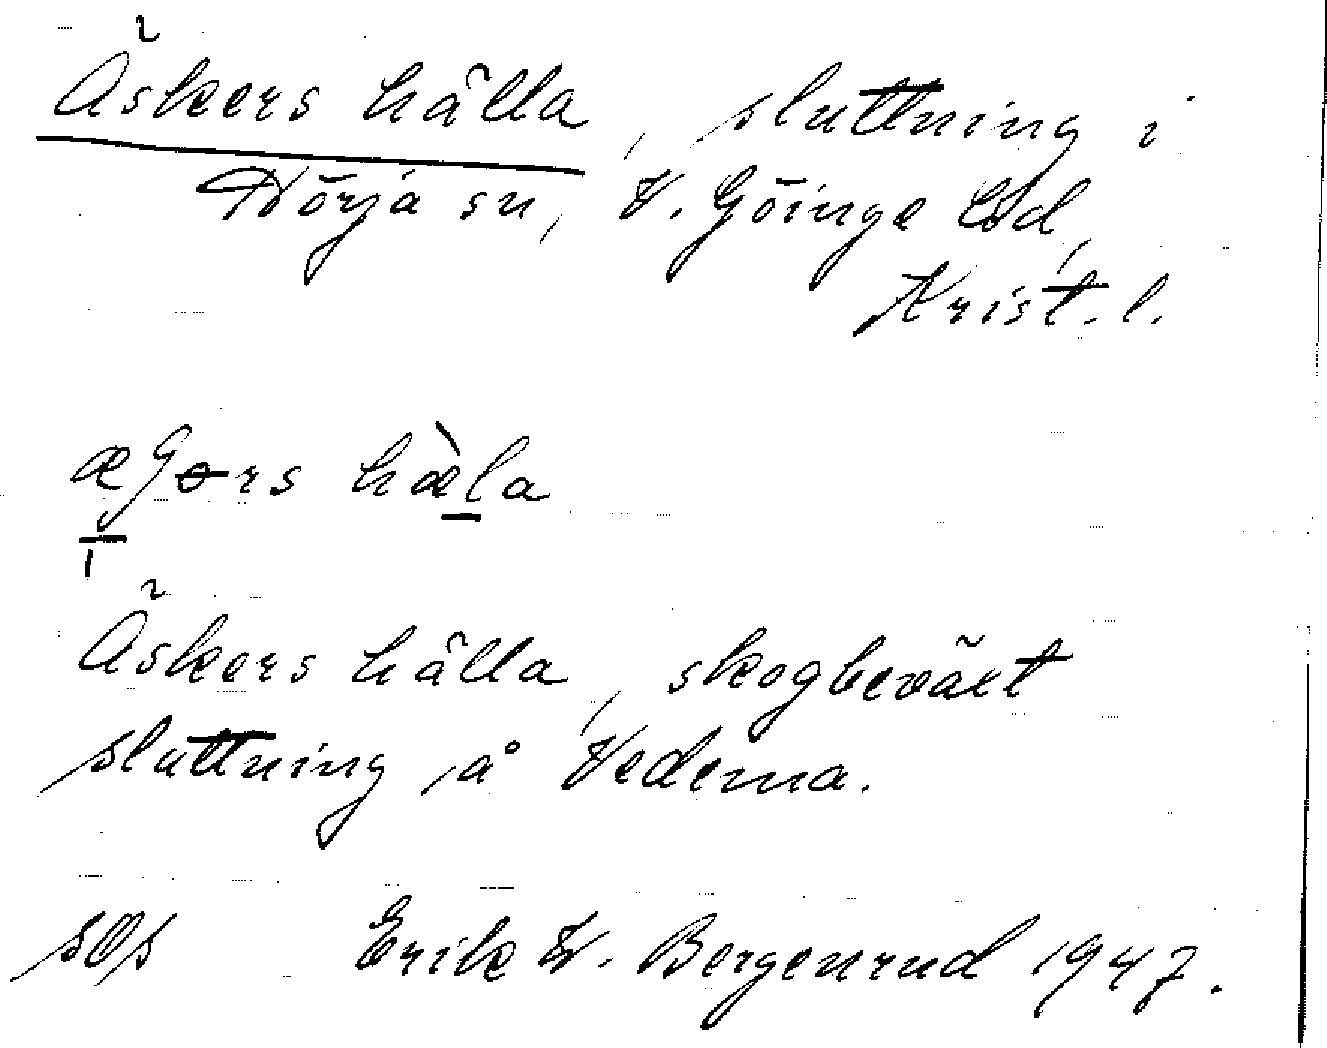 Äskers hälla, sluttning i
Nörja sn, V. Göinge hd,
Krist. l.
ægərs hæ̀la
Äskers hälla, skogbeväxt
sluttning å Vedema.
Erik W. Bergenrud 1947.